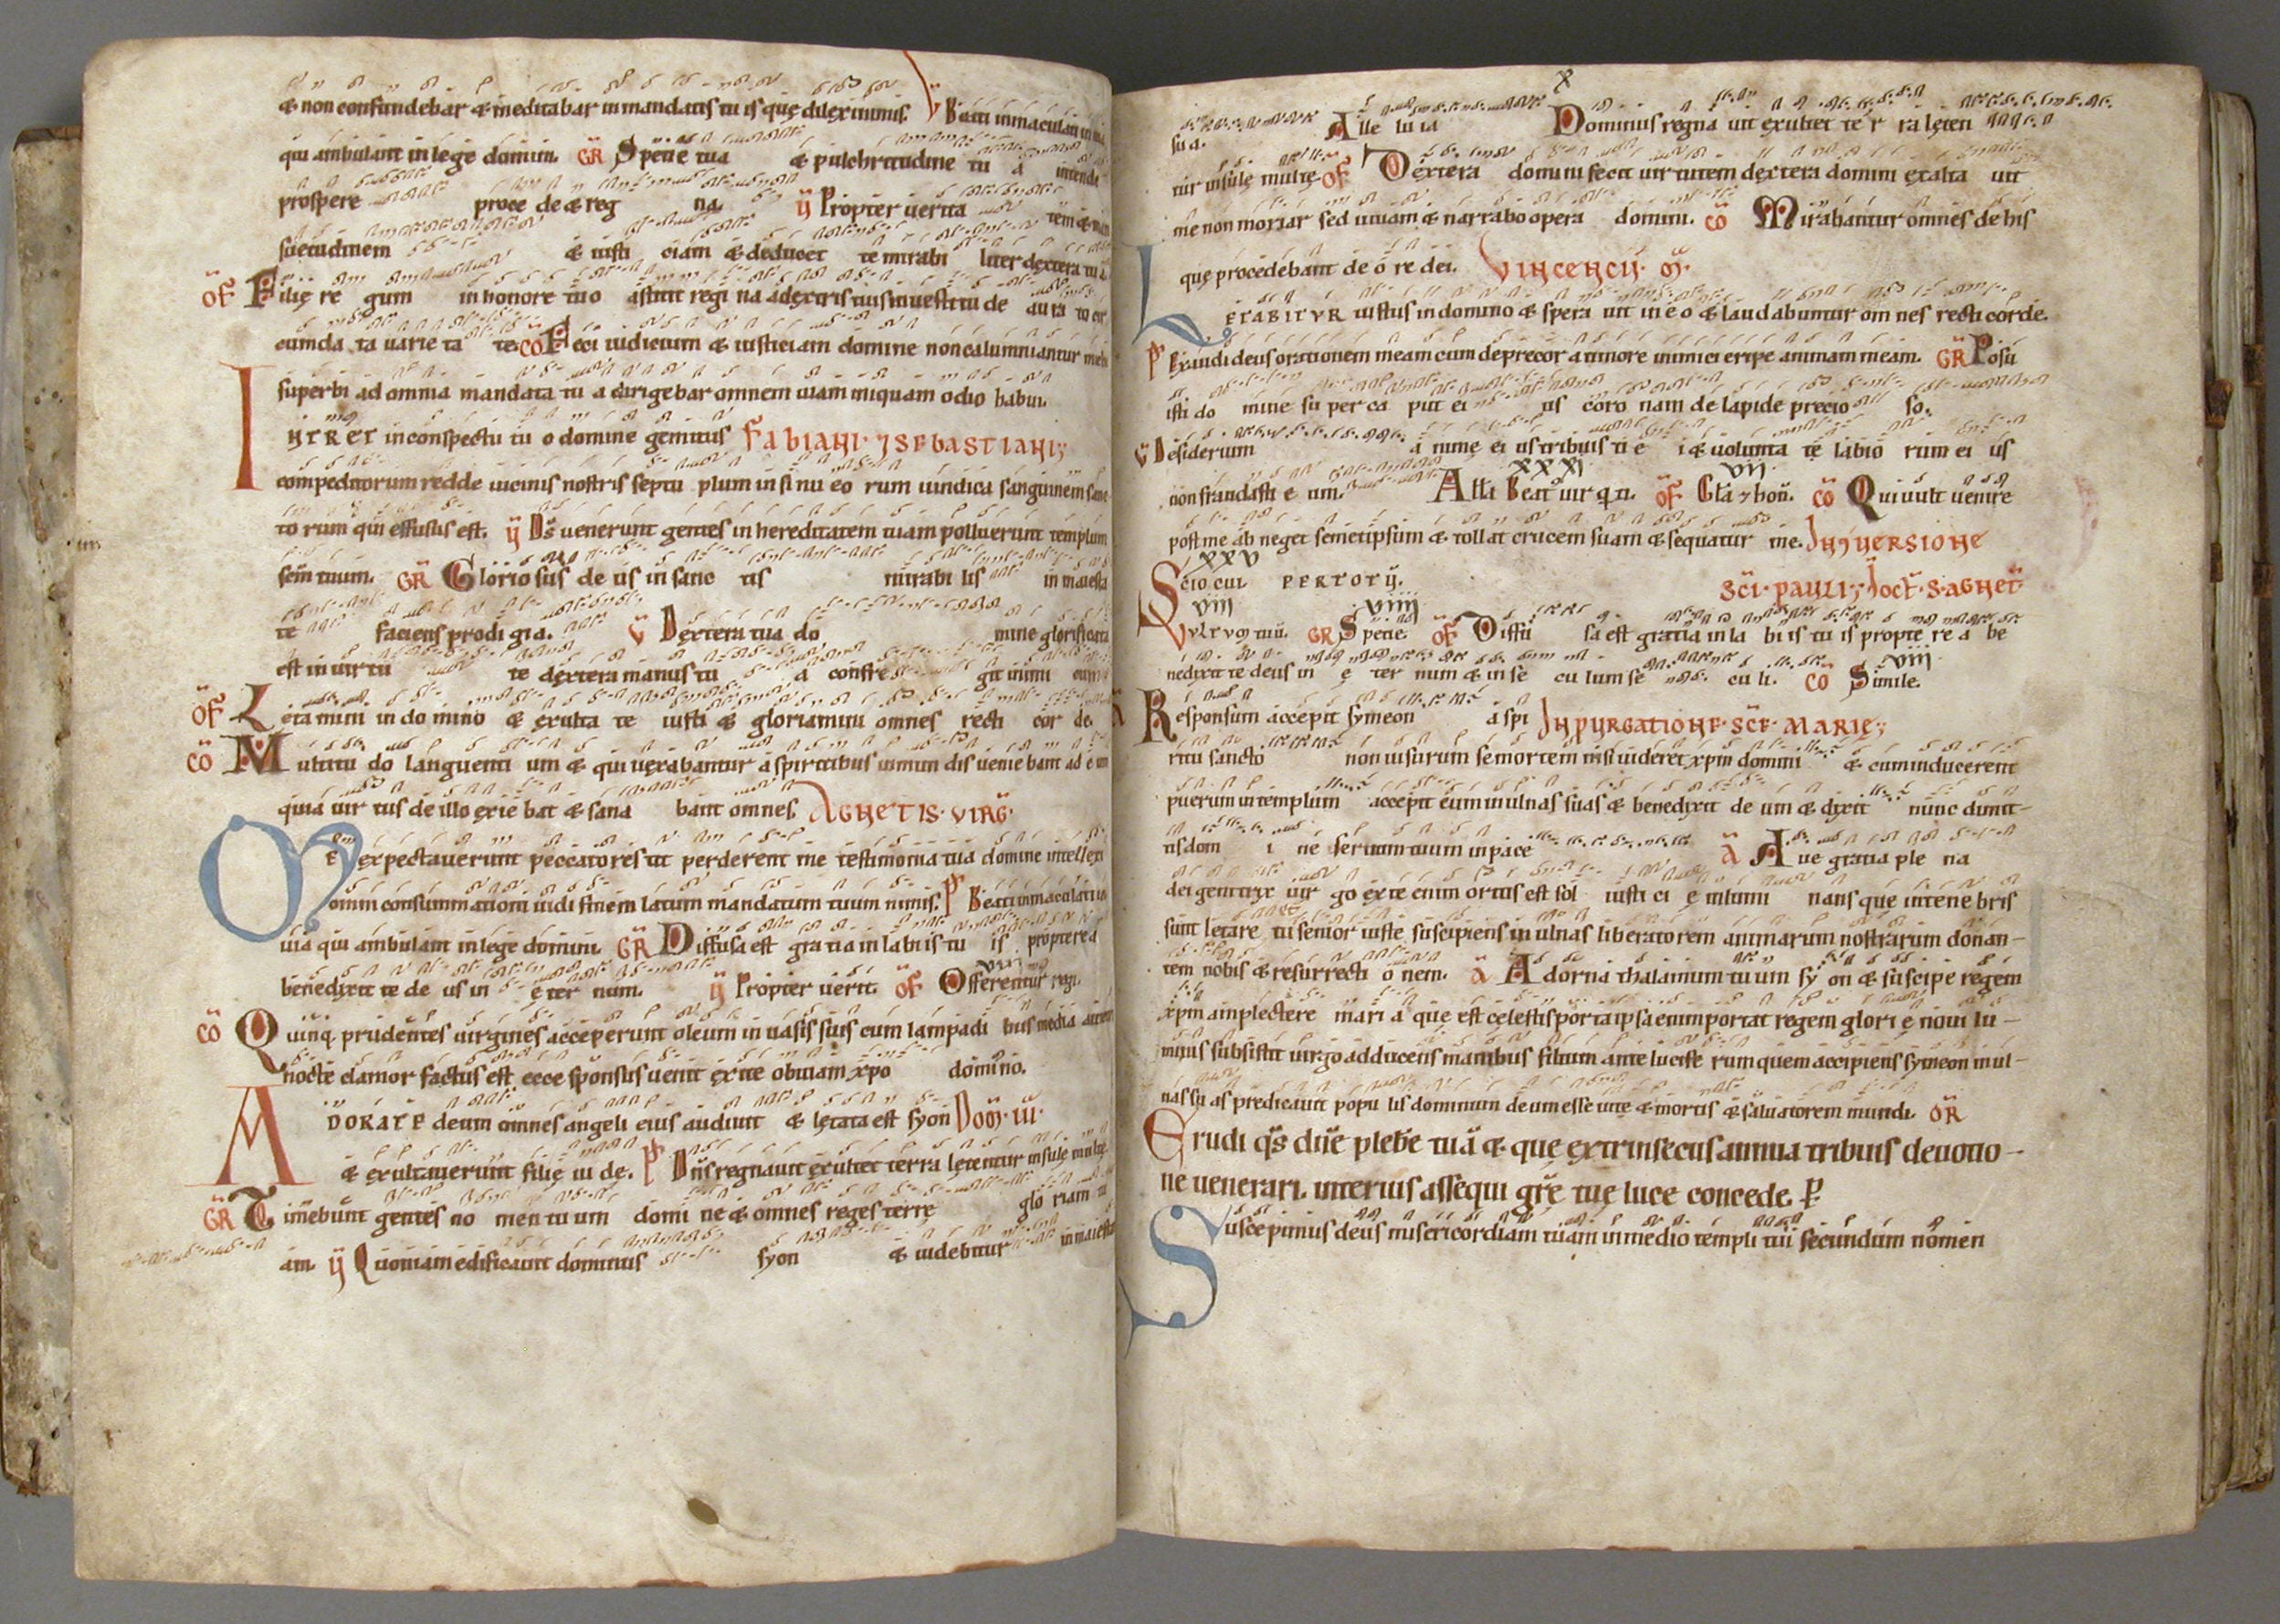 & non confundebar & meditabar in mandatis tu is quę dilexi nimis. V Beati inmaculati in
qui ambulant in lege domini. GR Specie tua & pulchritudine tu a intende
prospere proce de & reg na. V Propter uerita tem & man
suetudinem & iusti ciam & deducet te mirabi liter dextera tu a
OF Filię re gum in honore tuo astitit regi na a dextris tuis in uestitu de au ra to cir
cumda ta uarie ta te. CO Feci iudicium & iusticiam domine non calumniantur michi
superbi ad omnia mandata tu a dirigebar omnem uiam iniquam odio habui.
INTRET in conspectu tu o domine gemitus FABIANI. 7 SEBASTIANI;
compeditorum redde uicinis nostris septu plum in si nu eo rum uindica sanguinem sanc
to rum qui effusus est. V Ds uenerunt gentes in hereditatem tuam polluerunt templum
scm tuum. GR Glorio sus de us in sanc tis mirabi lis in maiesta
te faciens prodi gi a. V Dextera tua do mine glorificata
est in uir tu te dextera manus tu a confre git inimi cum
OF Leta mini in do mino & exulta te iusti & gloriamini omnes recti cor de.
CO Multitu do languenti um & qui uexabantur a spiritibus inmun dis uenie bant ad e um
quia uir tus de illo exie bat & sana bant omnes. AGNETIS. VIRG.
ME expectauerunt peccatores ut perderent me testimonia tua domine intellexi
omni consummationi uidi finem latum mandatum tuum nimis. Ps Beati inmaculati in
uia qui ambulant in lege domini. GR Diffusa est gra tia in labiis tu is propterea
benedixit te de us in ęter num. V Propter uerit. OF Offerentur regi. viii
CO Quinq. prudentes uirgines acceperunt oleum in uasis suis cum lampadi bus media autem
nocte clamor factus est ecce sponsus uenit exite obuiam xpo domino.
ADORATE deum omnes angeli eius audiuit & lętata est syon DOM. III.
& exultauerunt filię iu de. Ps Dns regnauit exultet terra lętentur insulę multę.
GR Timebunt gentes no men tu um domi ne & omnes reges terrę glo riam tu
am. V Quoniam edificauit dominus syon & uidebitur in maiesta
su a. Alle lu ia X Dominus regna uit exultet te r ra lęten
tur insulę multę. OF Dextera domini fecit uirtutem dextera domini exalta uit
me non moriar sed uiuam & narrabo opera domini. CO Mirabantur omnes de his
quę procedebant de o re dei. VINCENCII. M.
LETABITUR iustus in domino & spera uit in e o & laudabuntur om nes recti corde.
Ps Exaudi deus orationem meam cum deprecor a timore inimici eripe animam meam. GR Posu
isti do mine su per ca put ei us coro nam de lapide precio so.
V Desiderium a nimę ei us tribuis ti e i & uolunta te labio rum ei us
non fraudasti e um. Alla Beat uir q. ti. xxxi OF Gla 7 hon. vii CO Qui uult uenire
post me ab neget semetipsum & tollat crucem suam & sequatur me. IN 9UERSIONE
xxv
Scio cui PERTOTU. SCI. PAULI; Oct. S. AGNET
viii viiii
VULTUM tuu. GR Specie. OF Diffu sa est gratia in la bi is tu is propte re a be
nedixit te deus in ę ter num & in se cu lum se cu li. CO Simile. viii
A Responsum accepit symeon a spi IN PURGATIONE. SCE. MARIĘ;
ritu sancto non uisurum se mortem nisi uideret xpm domini & cum inducerent
puerum in templum accepit eum in ulnas suas & benedixit de um & dixit nunc dimit-
tis dom i ne seruum tuum in pace A Aue gratia ple na
dei genitrix uir go ex te enim ortus est sol iusti ci ę inlumi nans quę in tene bris
sunt letare tu senior iuste suscipiens in ulnas liberato rem animarum nostrarum donan-
tem nobis & resurrecti o nem. A Adorna thalamum tu um sy on & suscipe regem
xpm amplectere mari a que est celestis porta ipsa enim portat regem glori ę noui lu-
minis subsistit uirgo adducens manibus filium ante lucife rum quem accipiens symeon in ul-
nas su as predicauit popu lis dominum deum esse uitę & mortis & saluatorem mundi. OR
Erudi qs dne plebe tuā & que extrinsecus annua tribuis deuotio-
ne uenerari. interius assequi grē tuę luce concede. P
Suscepimus deus misericordiam tuam in medio templi tui secundum nomen